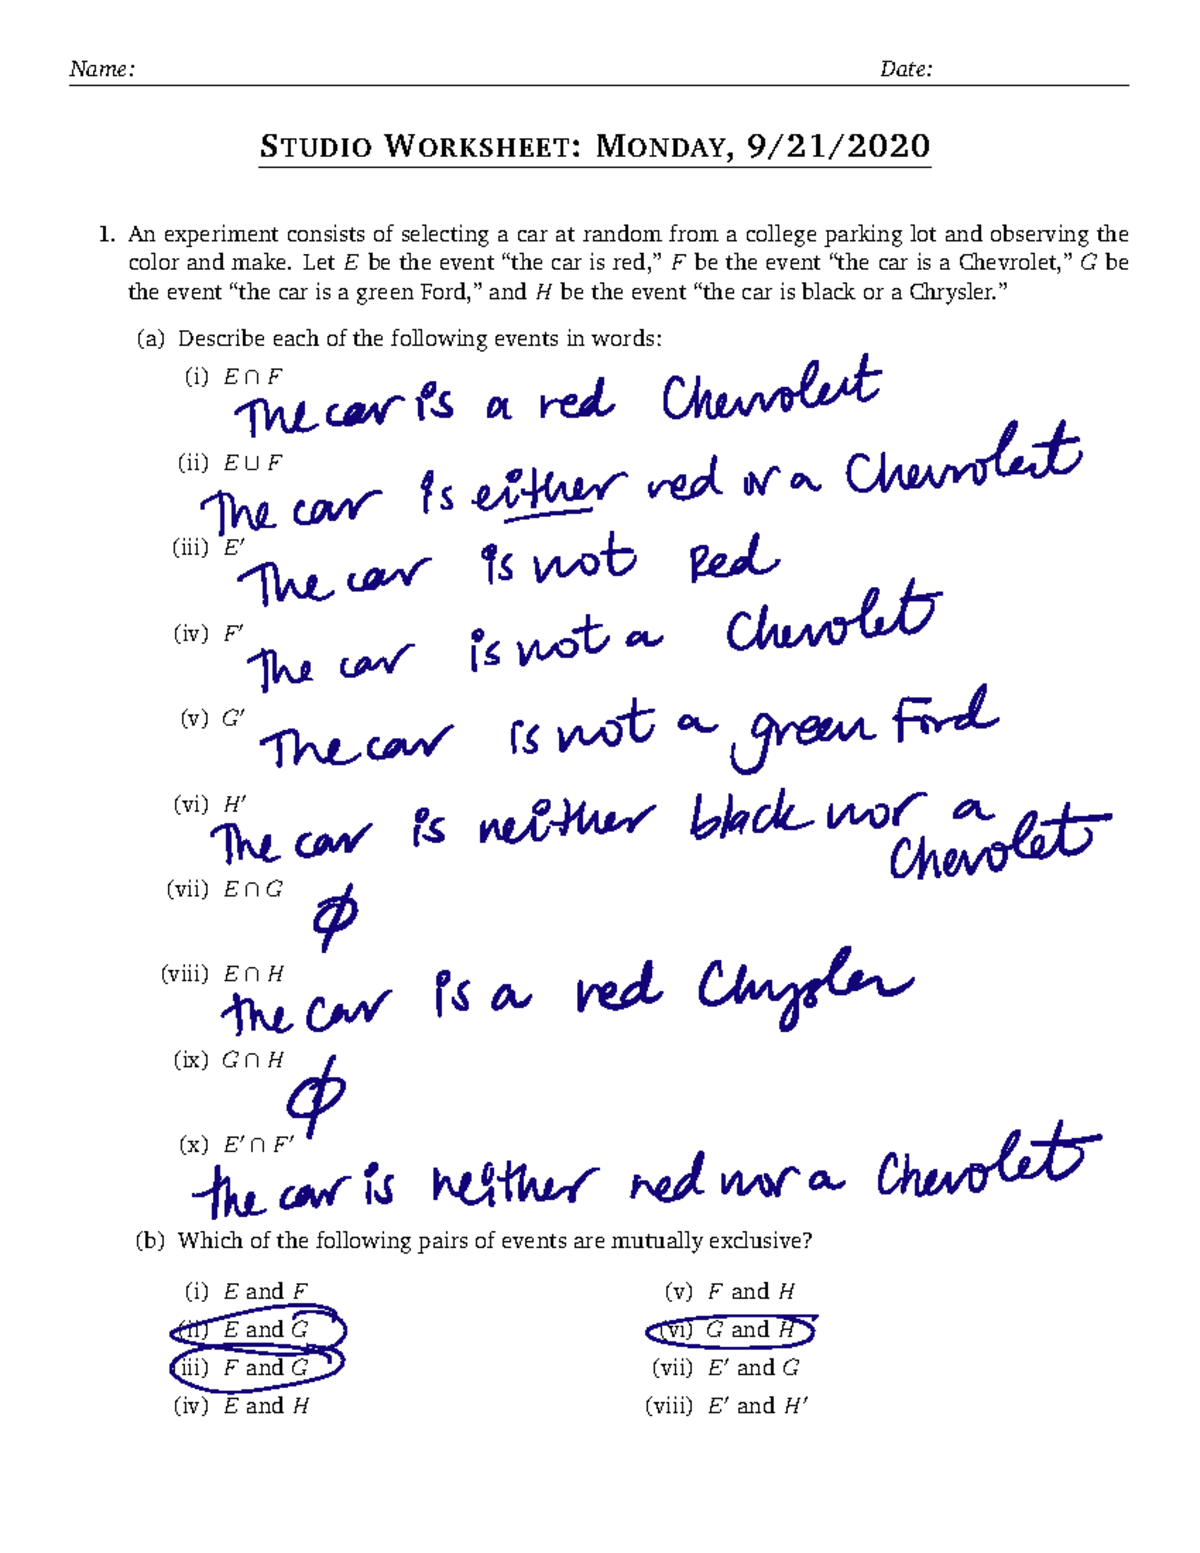 Name: Date:
STUDIO WORKSHEET: MONDAY, 9/21/2020
1. An experiment consists of selecting a car at random from a college parking lot and observing the
color and make. Let E be the event “the car is red,” F be the event “the car is a Chevrolet,” G be
the event “the car is a green Ford,” and H be the event “the car is black or a Chrysler.”
(a) Describe each of the following events in words:
(i) E ∩ F
The car is a red Chevrolert
(ii) E ∪ F
The car is either red or a Chevrolert
(iii) E′
The car is not Red
(iv) F′
The car is not a Chevolet
(v) G′
The car is not a green Ford
(vi) H′
The car is neither black nor a
Chevolet
(vii) E ∩ G
∅
(viii) E ∩ H
the car is a red Chrysler
(ix) G ∩ H
∅
(x) E′ ∩ F′
the car is neither red nor a Chevolet
(b) Which of the following pairs of events are mutually exclusive?
(i) E and F (v) F and H
(ii) E and G (vi) G and H
(iii) F and G (vii) E′ and G
(iv) E and H (viii) E′ and H′